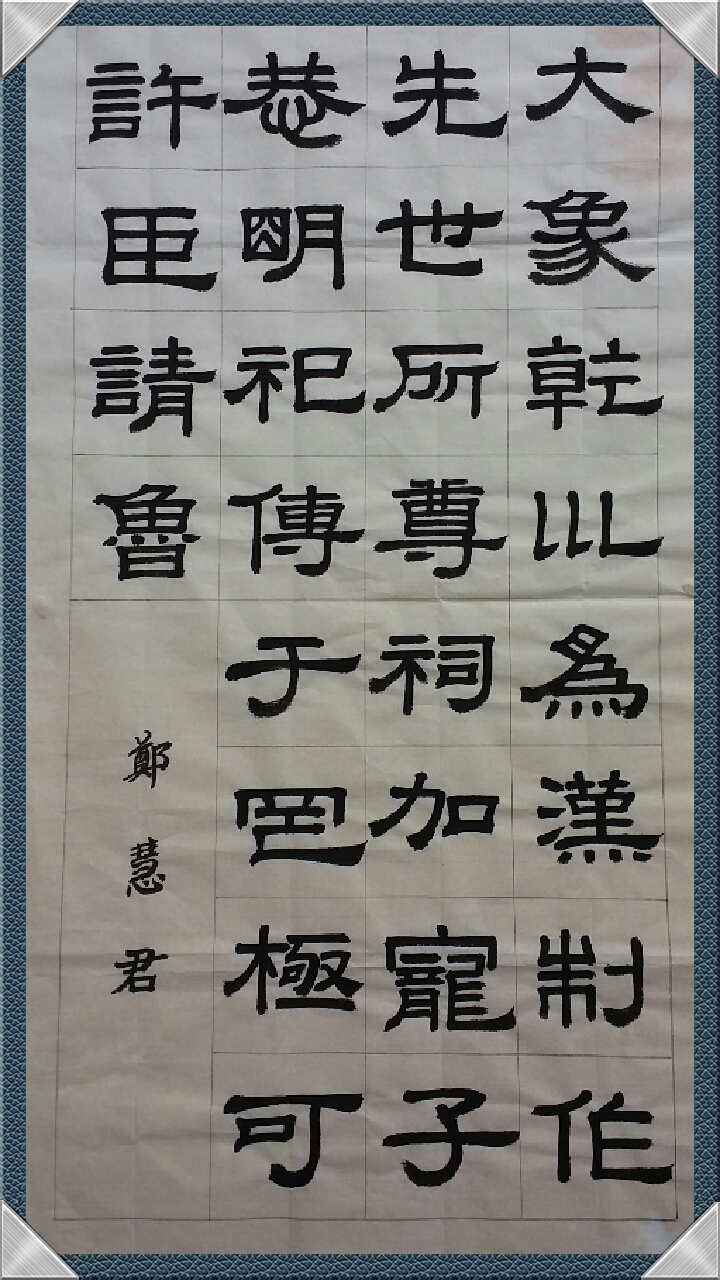 大象乾巛為漢制作
先世所尊祠加寵子
恭明祀傳于罔極可
許臣請魯
鄭慧君